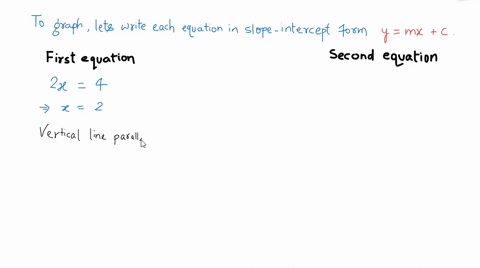 To graph, lets write each equation in slope-intercept form y = mx + c.
First equation
Second equation
2x = 4
⇒ x = 2
Vertical line parall